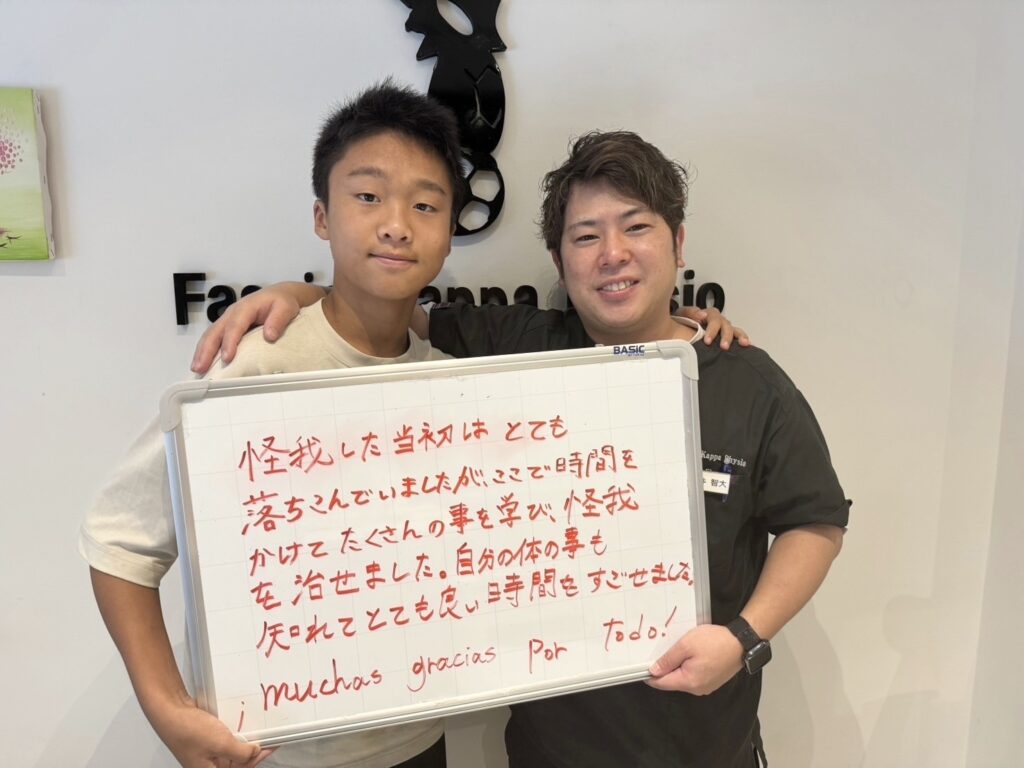 BASIC
怪我した当初は とても
落ちこんでいましたが、ここで時間を
かけて たくさんの事を学び、怪我
を治せました。自分の体の事も
知れてとても良い時間をすごせました。
¡ muchas gracias por todo!
Kappa Physio
智大